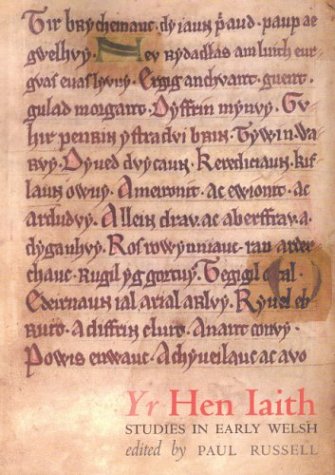 Tir brycheinauc. dyiaun paup ae
gwelhvy. Ney rydadlas am luith eur
Ergig anchvant. guent.
gulad morgant. Dyffrin mynvy. Gu
hir penrin ystradvi brin. Tywin. Wa
rvy. Dyued dvycaun. Kerediciaun. kif
laun owny. Ameironit. ac ewionit. ac
ardudvy. Allein drav. ac aberffrav. a
dyganhvy. Ros rowynniauc. ran arder
chauc. Rugil yg gortuy. Tegigil
Edeirnaun ial arial arlvy. Ryuel eb
ruto. A diffrin cluto. Anant convy.
Powis enwauc. Achyueilauc ac avo
Yr Hen Iaith
STUDIES IN EARLY WELSH
edited by PAUL RUSSELL